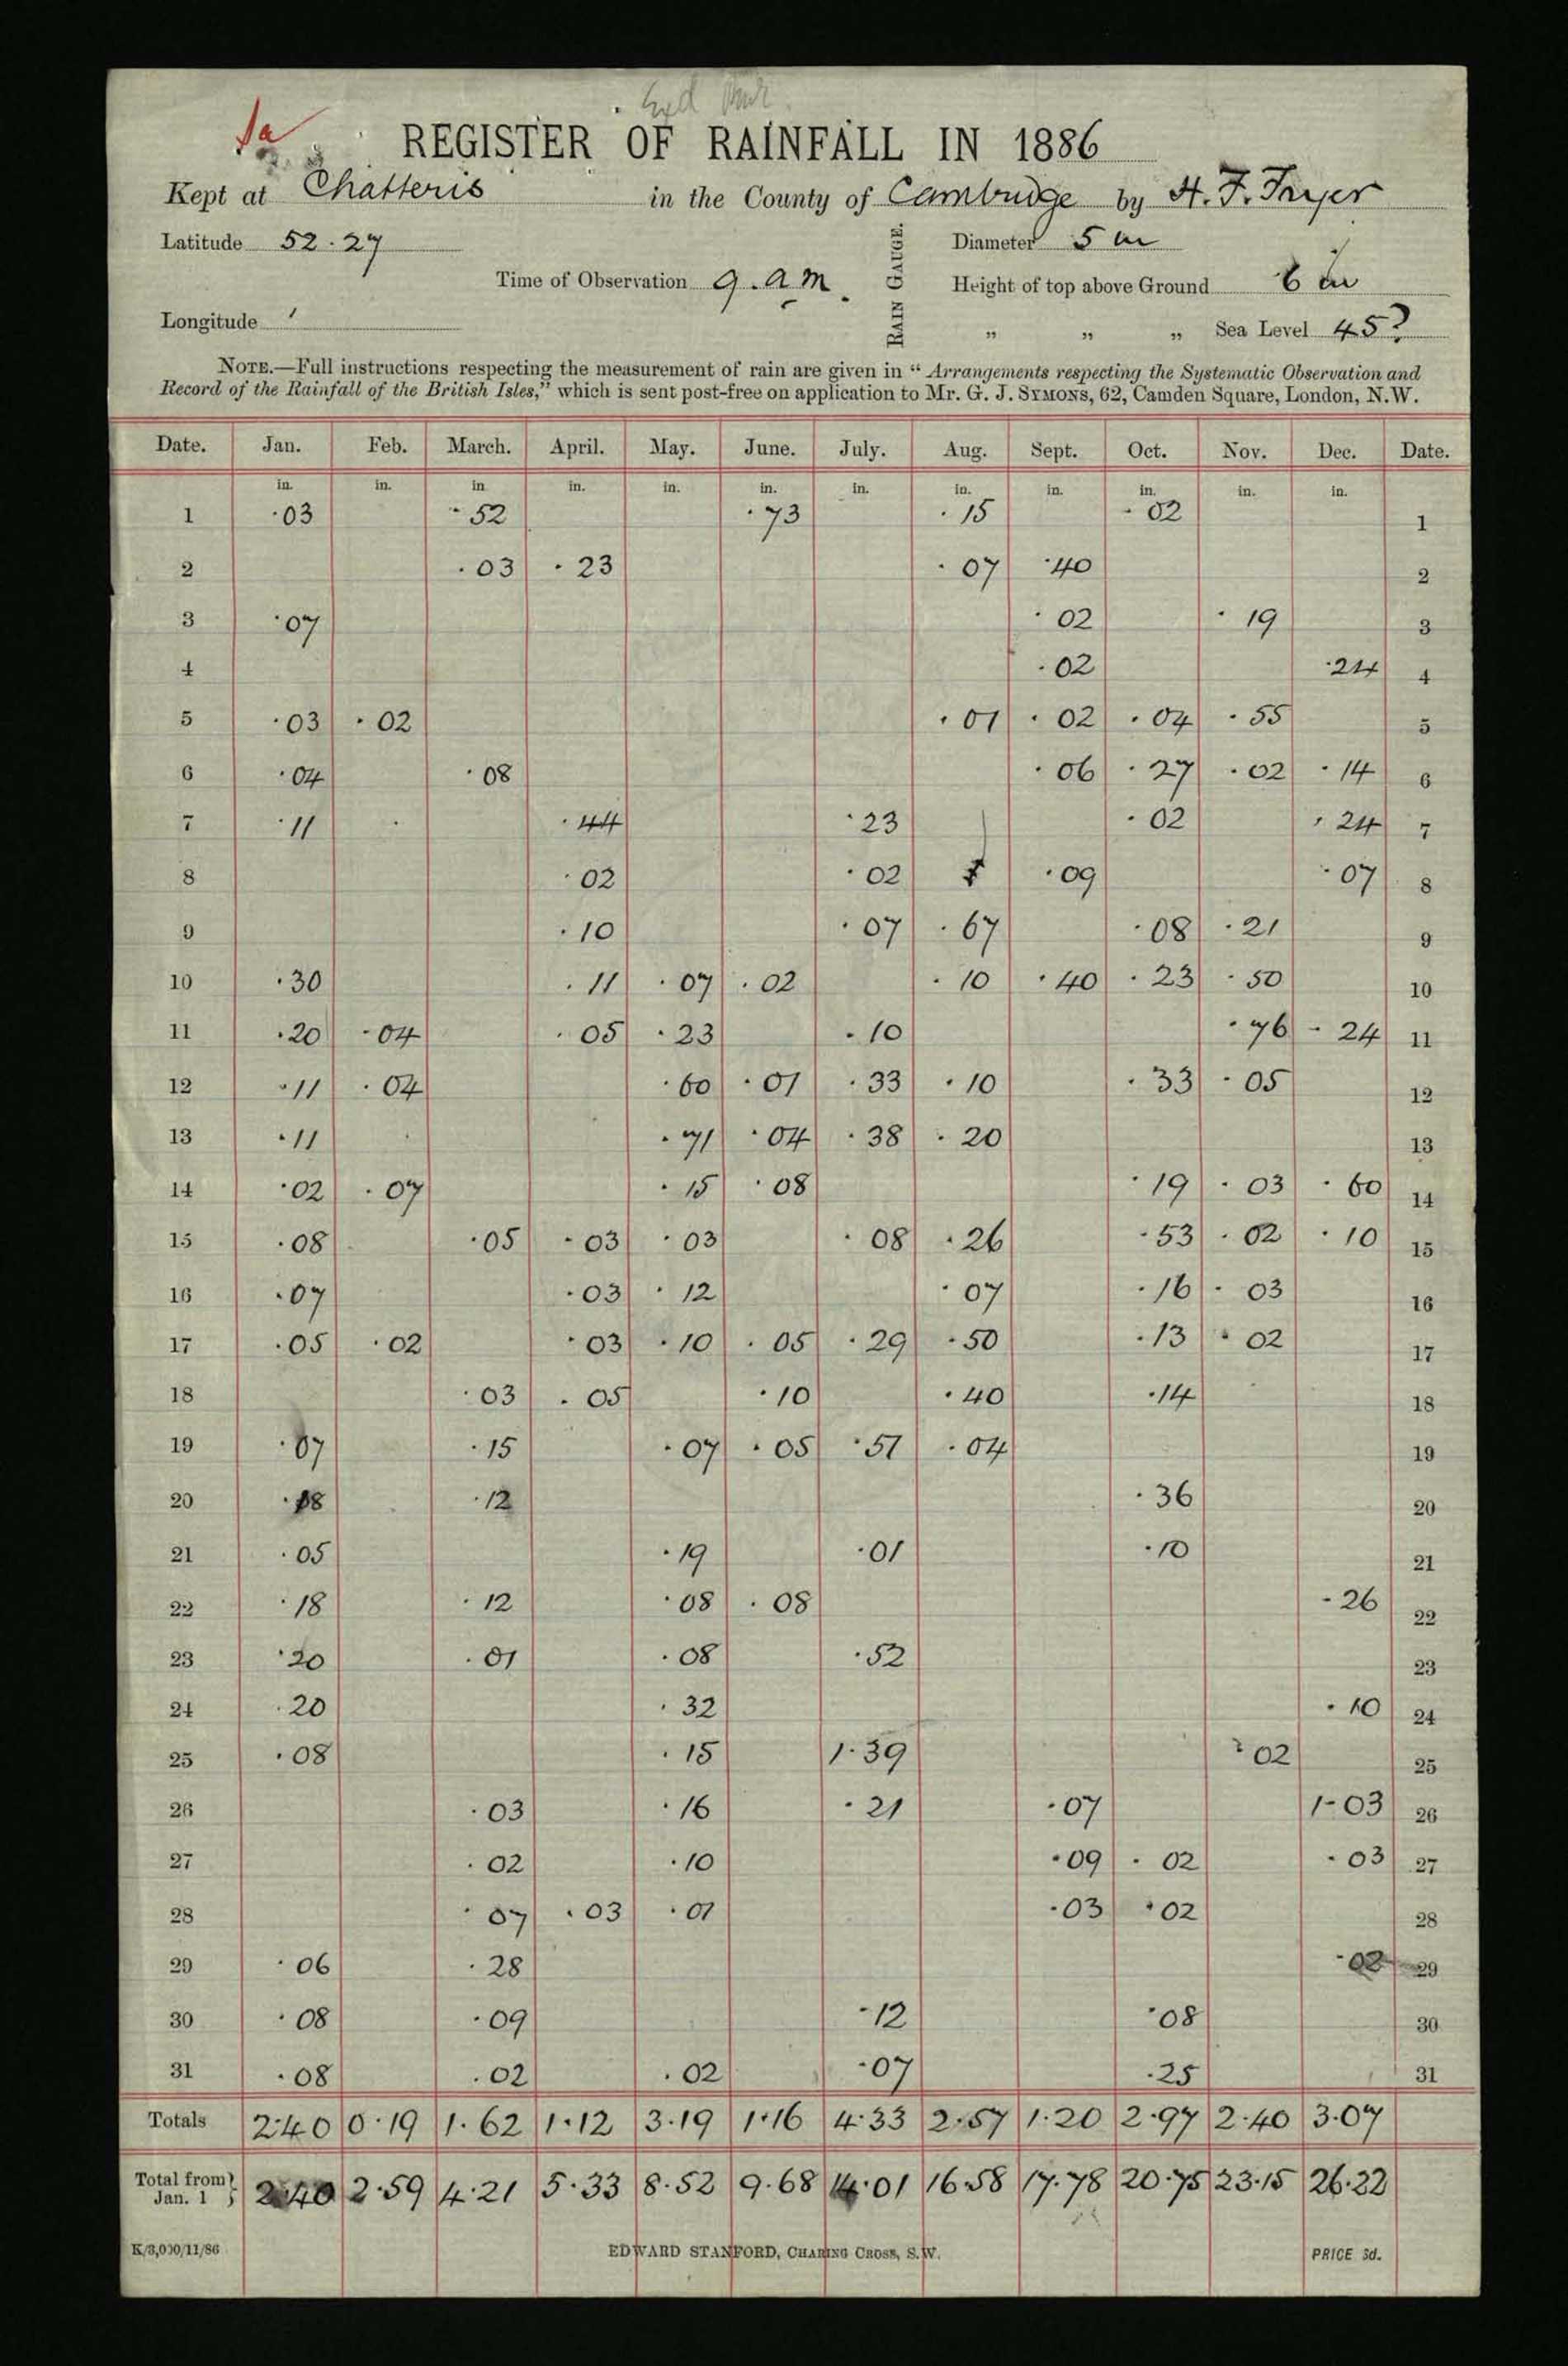 REGISTER OF RAINFALL IN 1886
Kept at Chatteris in the County of Cambridge by H. F. Fryer
Latitude 52.27 Diameter 5 in
Time of Observation 9.a.m. RAIN GAUGE. Height of top above Ground 6 in
Longitude „ „ „ Sea Level 45?
NOTE.—Full instructions respecting the measurement of rain are given in “Arrangements respecting the Systematic Observation and
Record of the Rainfall of the British Isles,” which is sent post-free on application to Mr. G. J. SYMONS, 62, Camden Square, London, N.W.
Date. Jan. Feb. March. April. May. June. July. Aug. Sept. Oct. Nov. Dec. Date.
in. in. in in. in. in. in. in. in. in. in. in.
1 ·03 ·52 ·73 ·15 ·02 1
2 ·03 ·23 ·07 ·40 2
3 ·07 ·02 ·19 3
4 ·02 ·24 4
5 ·03 ·02 ·01 ·02 ·04 ·55 5
6 ·04 ·08 ·06 ·27 ·02 ·14 6
7 ·11 ·44 ·23 ·02 ·24 7
8 ·02 ·02 ·09 ·07 8
9 ·10 ·07 ·67 ·08 ·21 9
10 ·30 ·11 ·07 ·02 ·10 ·40 ·23 ·50 10
11 ·20 ·04 ·05 ·23 ·10 ·76 ·24 11
12 ·11 ·04 ·60 ·01 ·33 ·10 ·33 ·05 12
13 ·11 ·71 ·04 ·38 ·20 13
14 ·02 ·07 ·15 ·08 ·19 ·03 ·60 14
15 ·08 ·05 ·03 ·03 ·08 ·26 ·53 ·02 ·10 15
16 ·07 ·03 ·12 ·07 ·16 ·03 16
17 ·05 ·02 ·03 ·10 ·05 ·29 ·50 ·13 ·02 17
18 ·03 ·05 ·10 ·40 ·14 18
19 ·07 ·15 ·07 ·05 ·51 ·04 19
20 ·18 ·12 ·36 20
21 ·05 ·19 ·01 ·10 21
22 ·18 ·12 ·08 ·08 ·26 22
23 ·20 ·01 ·08 ·52 23
24 ·20 ·32 ·10 24
25 ·08 ·15 1·39 ·02 25
26 ·03 ·16 ·21 ·07 1·03 26
27 ·02 ·10 ·09 ·02 ·03 27
28 ·07 ·03 ·01 ·03 ·02 28
29 ·06 ·28 ·02 29
30 ·08 ·09 ·12 ·08 30
31 ·08 ·02 ·02 ·07 ·25 31
Totals 2·40 0·19 1·62 1·12 3·19 1·16 4·33 2·57 1·20 2·97 2·40 3·07
Total from Jan. 1 2·40 2·59 4·21 5·33 8·52 9·68 14·01 16·58 17·78 20·75 23·15 26·22
K/3,000/11/86 EDWARD STANFORD, CHARING CROSS, S.W. PRICE 3d.